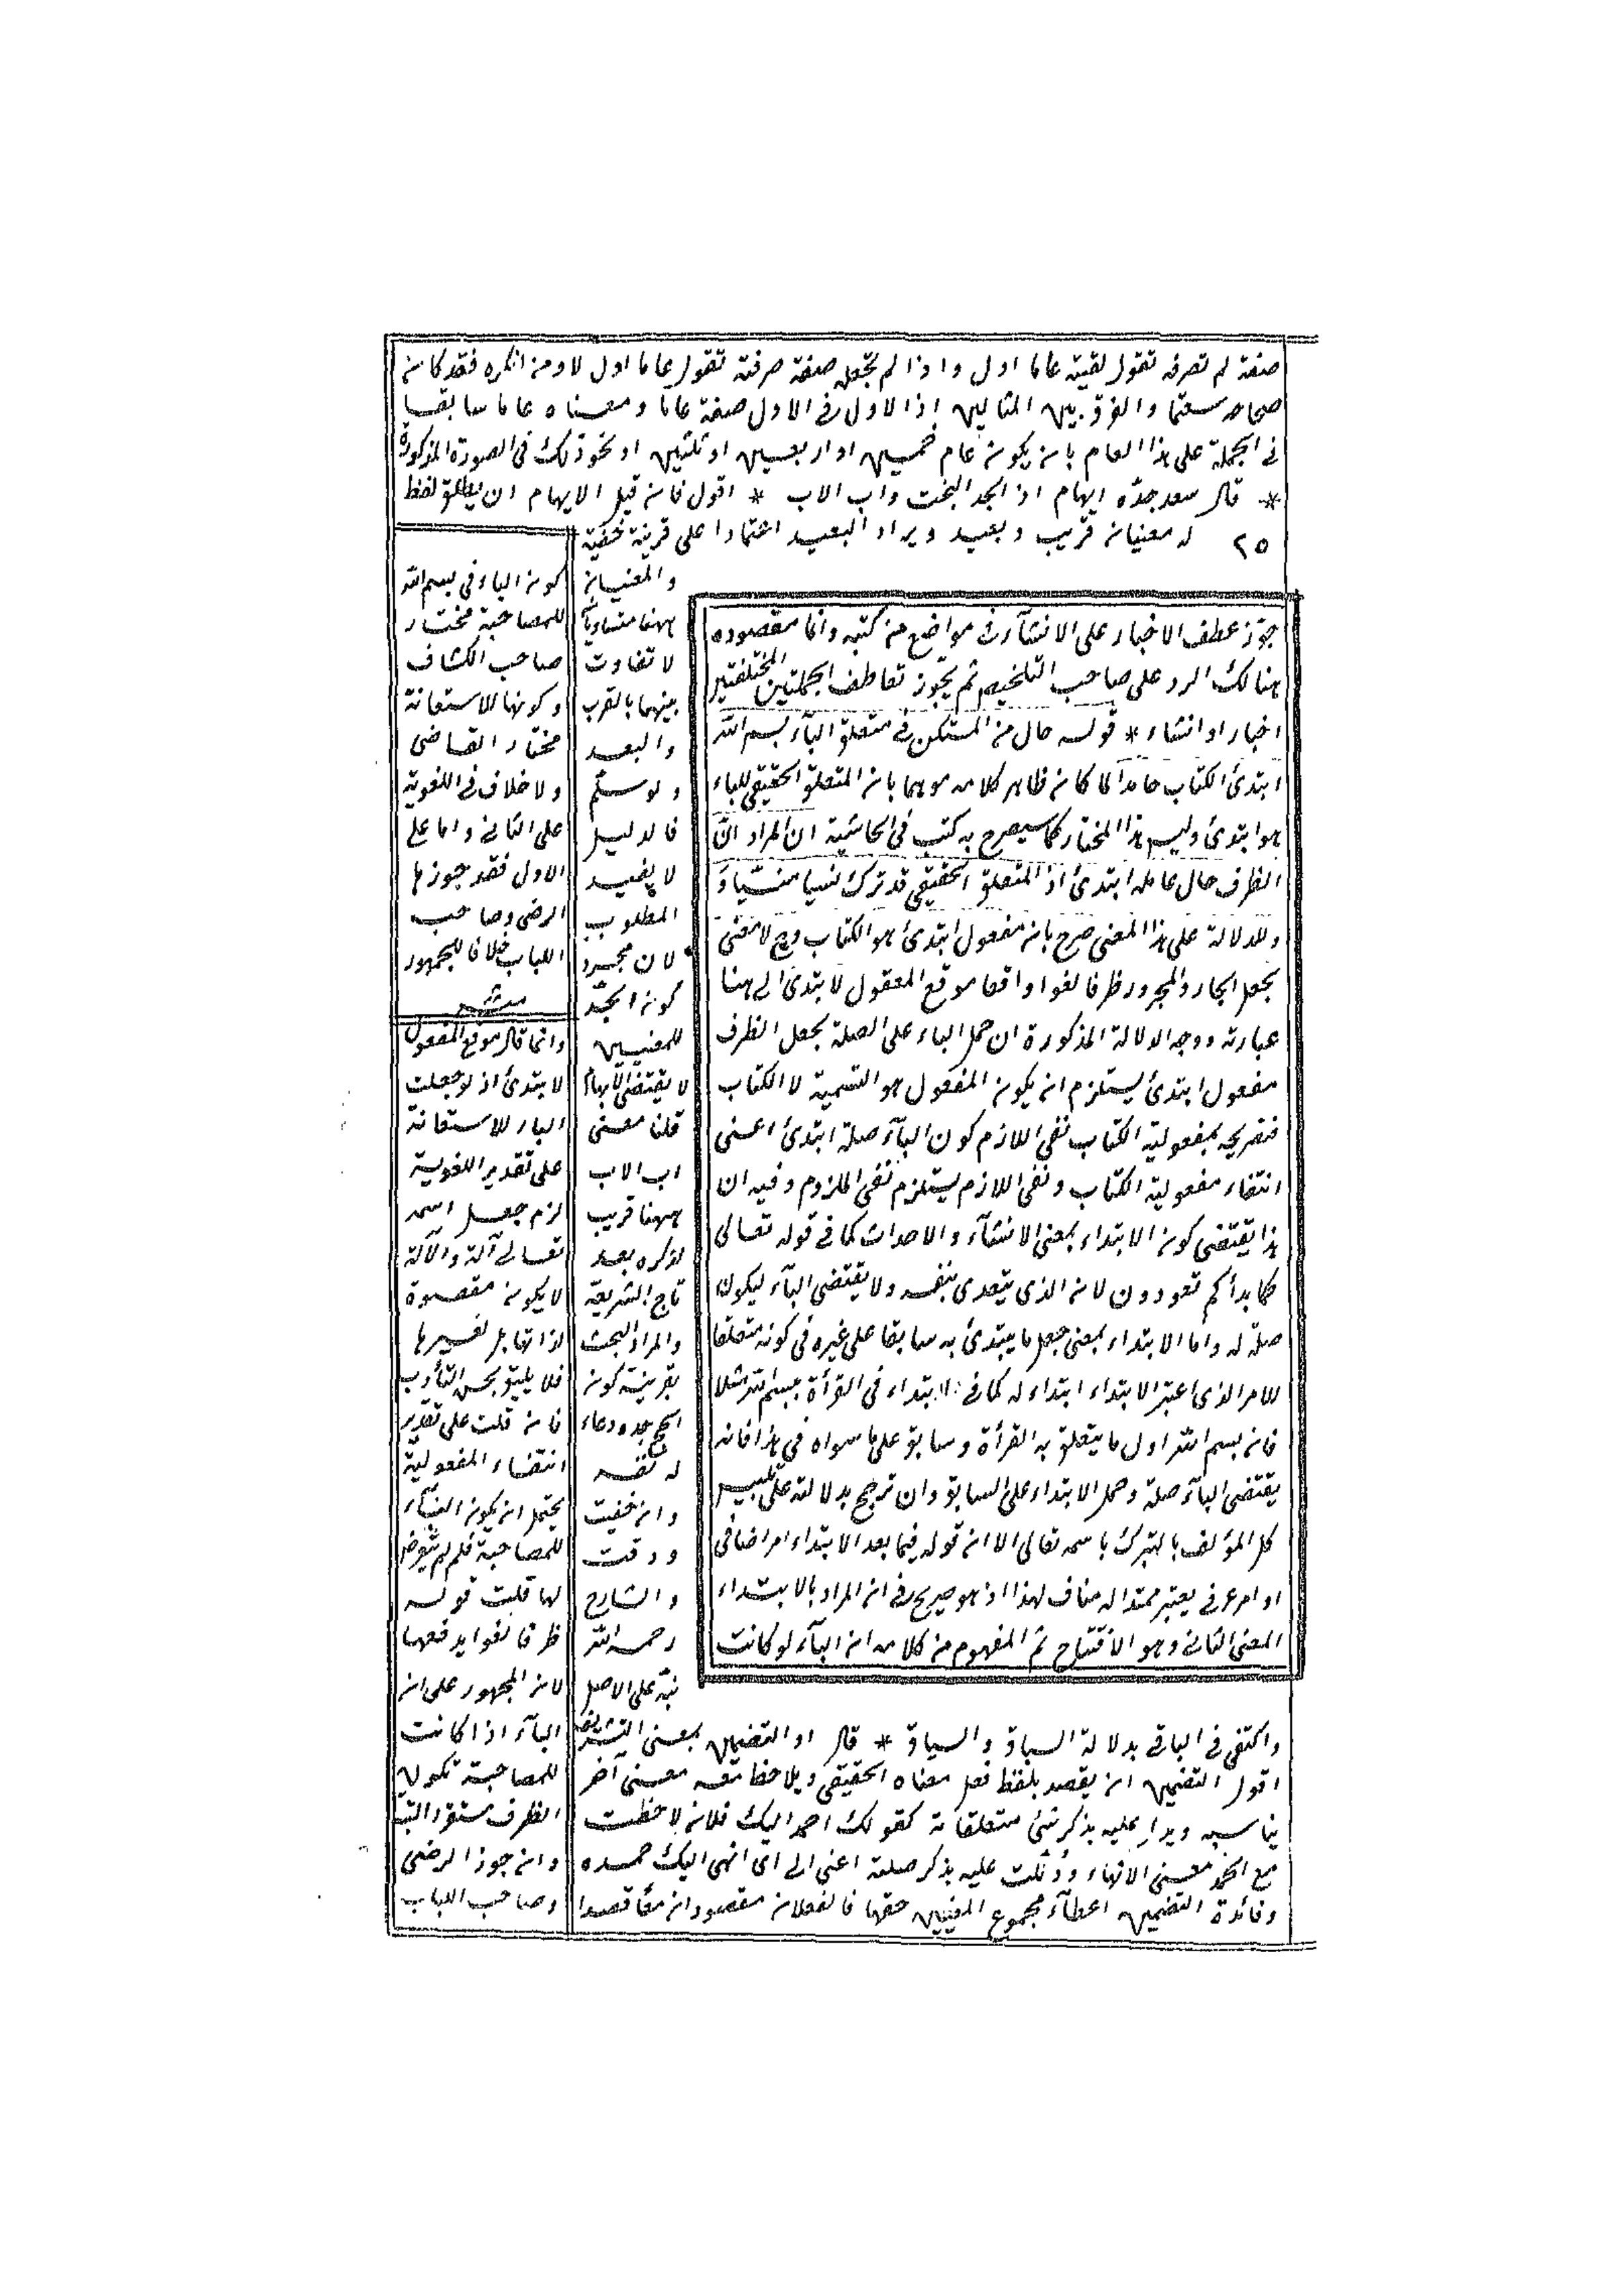 صفة لم تصرفه تقول لقيته عاما اول واذا لم تجعله صفة صرفته تقول عاما اول لا ومن انكره فقد كان من
والفرق بين المثالين اذ الاول في الاول صفة عاما ومعناه عاما سابقا
في الجملة على هذا العام بان يكون عام خمسين او اربعين او ثلثين او نحو ذلك في الصورة المذكورة
* قال سعد جده ايهام اذ الجد البخت واب الاب * اقول فان قيل الايهام ان يطلق لفظ
٢٥ له معنيان قريب وبعيد ويراد البعيد اعتمادا على قرينة خفية
والمعنيان
ههنا متساويان
لا تفاوت
بينهما بالقرب
والبعد
ولو سلم
فالدليل
لا يفيد
المطلوب
لان مجرد
كون الجد
للمعنيين
لا يقتضي الايهام
قلنا معنى
اب الاب
ههنا قريب
لذكره بعد
تاج الشريعة
والمراد البخت
بقرينة كون
انجح جده دعاء
له نفسه
وان خفيت
ودقت
والشارح
رحمه الله
نبه على الاصل
واكتفى في الباقي بدلالة السباق والسياق * قال او التضمين بمعنى التشريف
اقول التضمين ان يقصد بلفظ فعل معناه الحقيقي ويلاحظ معه معنى آخر
يناسبه ويدل عليه بذكر شئ متعلقاته كقولك احمد اليك فلانا لاحظت
مع الحمد معنى الانهاء ودللت عليه بذكر صلته اعني الى اى انهى اليك حمده
وفائدة التضمين اعطاء مجموع المعنيين حقها فالفعلان مقصودان معا قصدا
جوز عطف الاخبار على الانشآء في مواضع من كتبه وانما مقصوده
هنالك الرد على صاحب التلخيص ثم يجوز تعاطف الجملتين المختلفتين
اخبارا وانشاء * قوله حال من المستكن في متعلق البآء بسم الله
ابتدئ الكتاب حامدا لما كان ظاهر كلامه موهما بان المتعلق الحقيقي للباء
هو ابتدئ وليس هذا المختار كما سيصرح به كتب في الحاشية ان المراد ان
الظرف حال عامله ابتدئ اذ المتعلق الحقيقي قد ترك نسيا منسيا و
وللدلالة على هذا المعنى صرح بان مفعول ابتدئ هو الكتاب وح لا معنى
بجعل الجار والمجرور ظرفا لغوا واقعا موقع المعقول لابتدئ الى هنا
عبارته ووجه الدلالة المذكورة ان حمل الباء على الصلة بجعل الظرف
مفعول ابتدئ يستلزم ان يكون المفعول هو التسمية لا الكتاب
فتصريحه بمفعولية الكتاب نفى اللازم كون البآء صلة ابتدئ اعنى
انتفاء مفعولية الكتاب ونفى اللازم يستلزم نفى الملزوم وفيه ان
هذا يقتضى كون الابتداء بمعنى الانشآء والاحداث كما في قوله تعالى
كما بدأكم تعودون لانه الذى يتعدى بنفسه ولا يقتضى البآء ليكون
صلة له واما الابتداء بمعنى جعل ما يبتدئ به سابقا على غيره في كونه متعلقا
للامر الذى اعتبر الابتداء ابتداء له كما في الابتداء في القرأة ببسم الله مثلا
فان بسم الله اول ما يتعلق به القرأة وسابق على ما سواه في هذا فانه
يقتضى البآء صلة وحمل الابتداء على السابق وان ترجح بدلالته على تلبيس
كل المؤلف بالتبرك باسمه تعالى الا ان قوله فيما بعد الابتداء امر اضافى
او امر عرفى يعتبر ممتدا له مناف لهذا اذ هو صريح في ان المراد بالابتداء
المعنى الثانى وهو الافتتاح ثم المفهوم من كلامه ان البآء لو كانت
كون الباء في بسم الله
للمصاحبة مختار
صاحب الكشاف
وكونها للاستعانة
مختار القاضى
ولا خلاف في اللغوية
على الثانى واما على
الاول فقد جوزها
الرضى وصاحب
اللباب خلافا للجمهور
وانما قال موقع المفعول
لابتدئ اذ لو جعلت
الباء للاستعانة
على تقدير اللغوية
لزم جعل اسمه
تعالى آلة والآلة
لا يكون مقصودة
لذاتها بل لغيرها
فلا يليق بحسن التأدب
فان قلت على تقدير
انتفاء المفعولية
يحتمل ان يكون البآء
للمصاحبة فلم لم يتعرض
لها قلت قوله
ظرفا لغوا يدفعها
لان الجمهور على ان
البآء اذا كانت
للمصاحبة تكون
الظرف مستقرا البتة
وان جوز الرضى
وصاحب اللباب